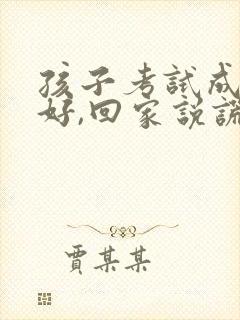 孩子考試成
好,回家說謊
賈某某